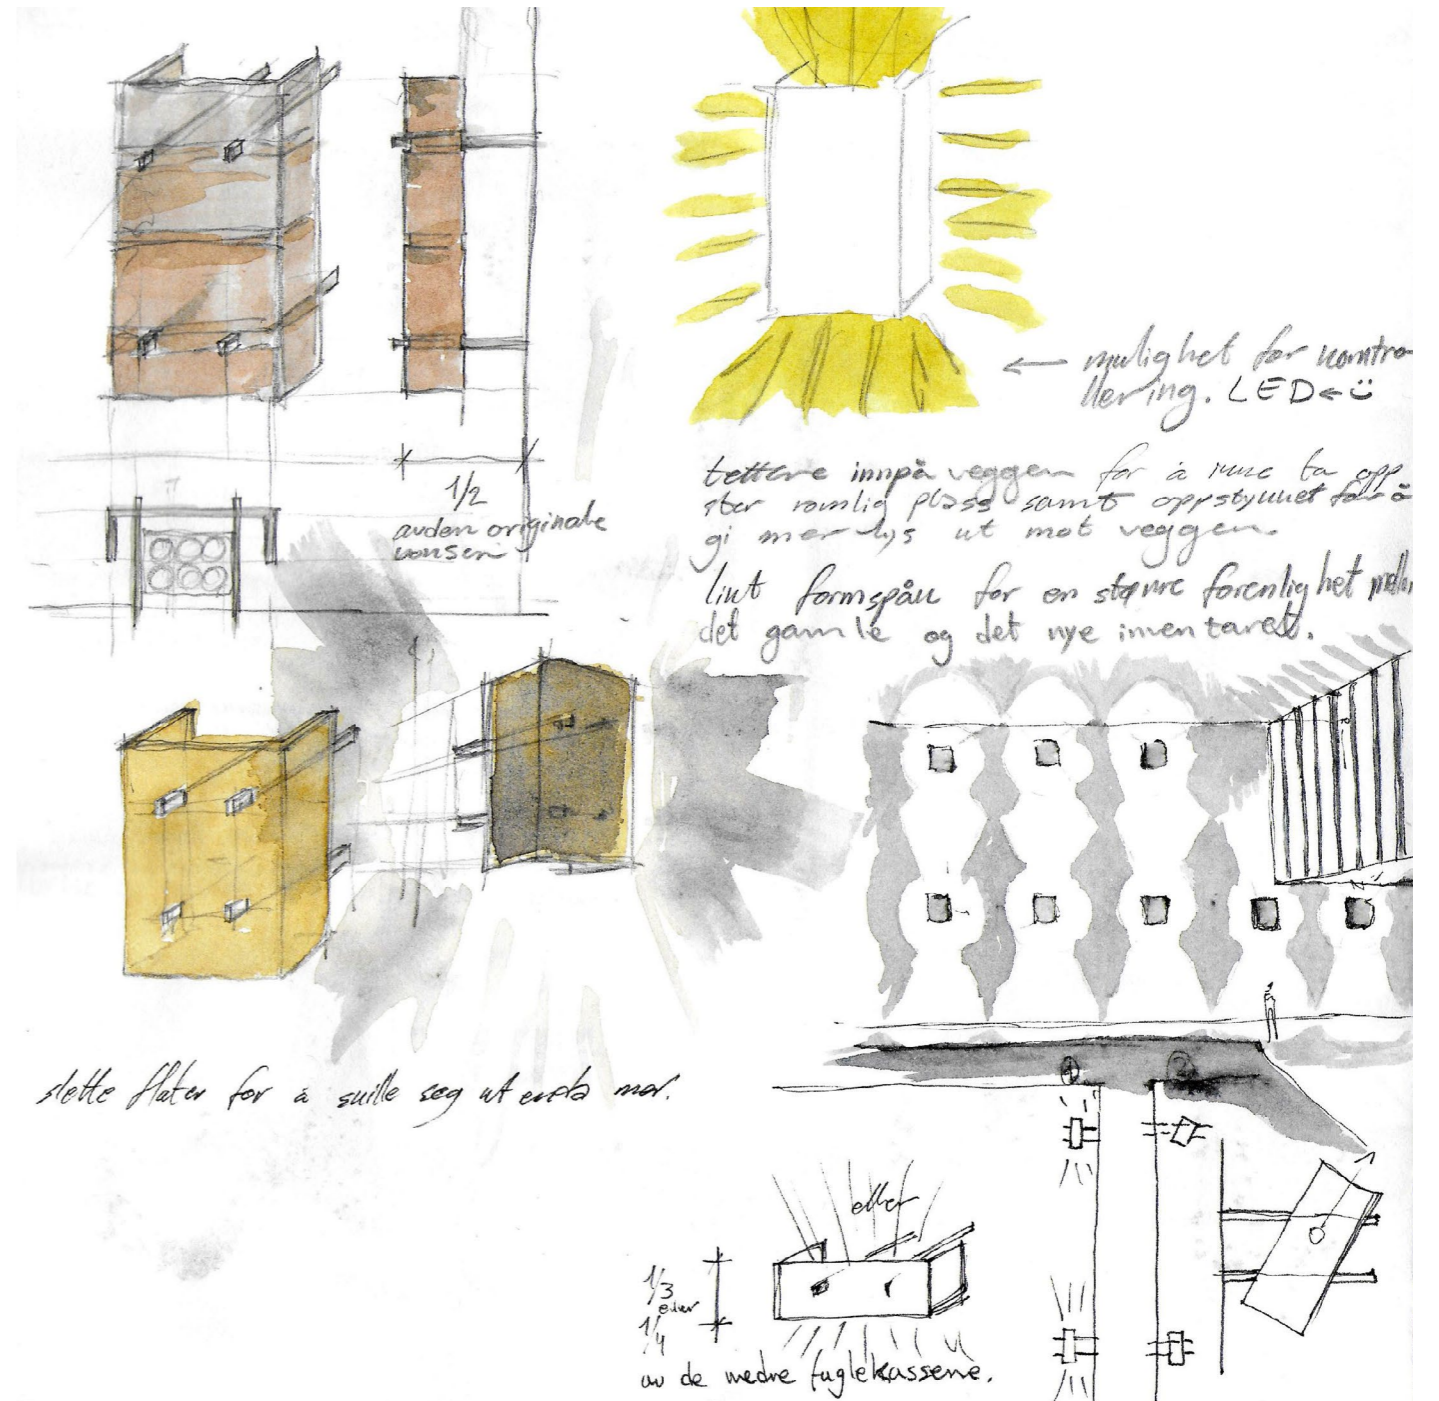 mulighet for kontro-
llering. LED ← ü
1/2
av den originale
konsen
tettere innpå veggen for å ikke ta opp
stor romlig plass samt oppstykket for å
gi mer lys ut mot veggen.
likt formspåk for en større forenlighet mellom
det gamle og det nye inventaret.
slette flater for å skille seg ut enda mer.
eller
1/3
eller
1/4
av de nedre fuglekassene.